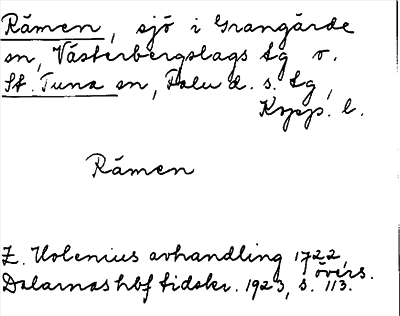 Råmen, sjö i Grangärde
sn, Västerbergslags tg o.
St. Tuna sn, Falu d. s. tg,
Kopp. l.
Råmen
E. Holenius avhandling 1722,
övers.
Dalarnas hbf tidskr. 1923, s. 113.